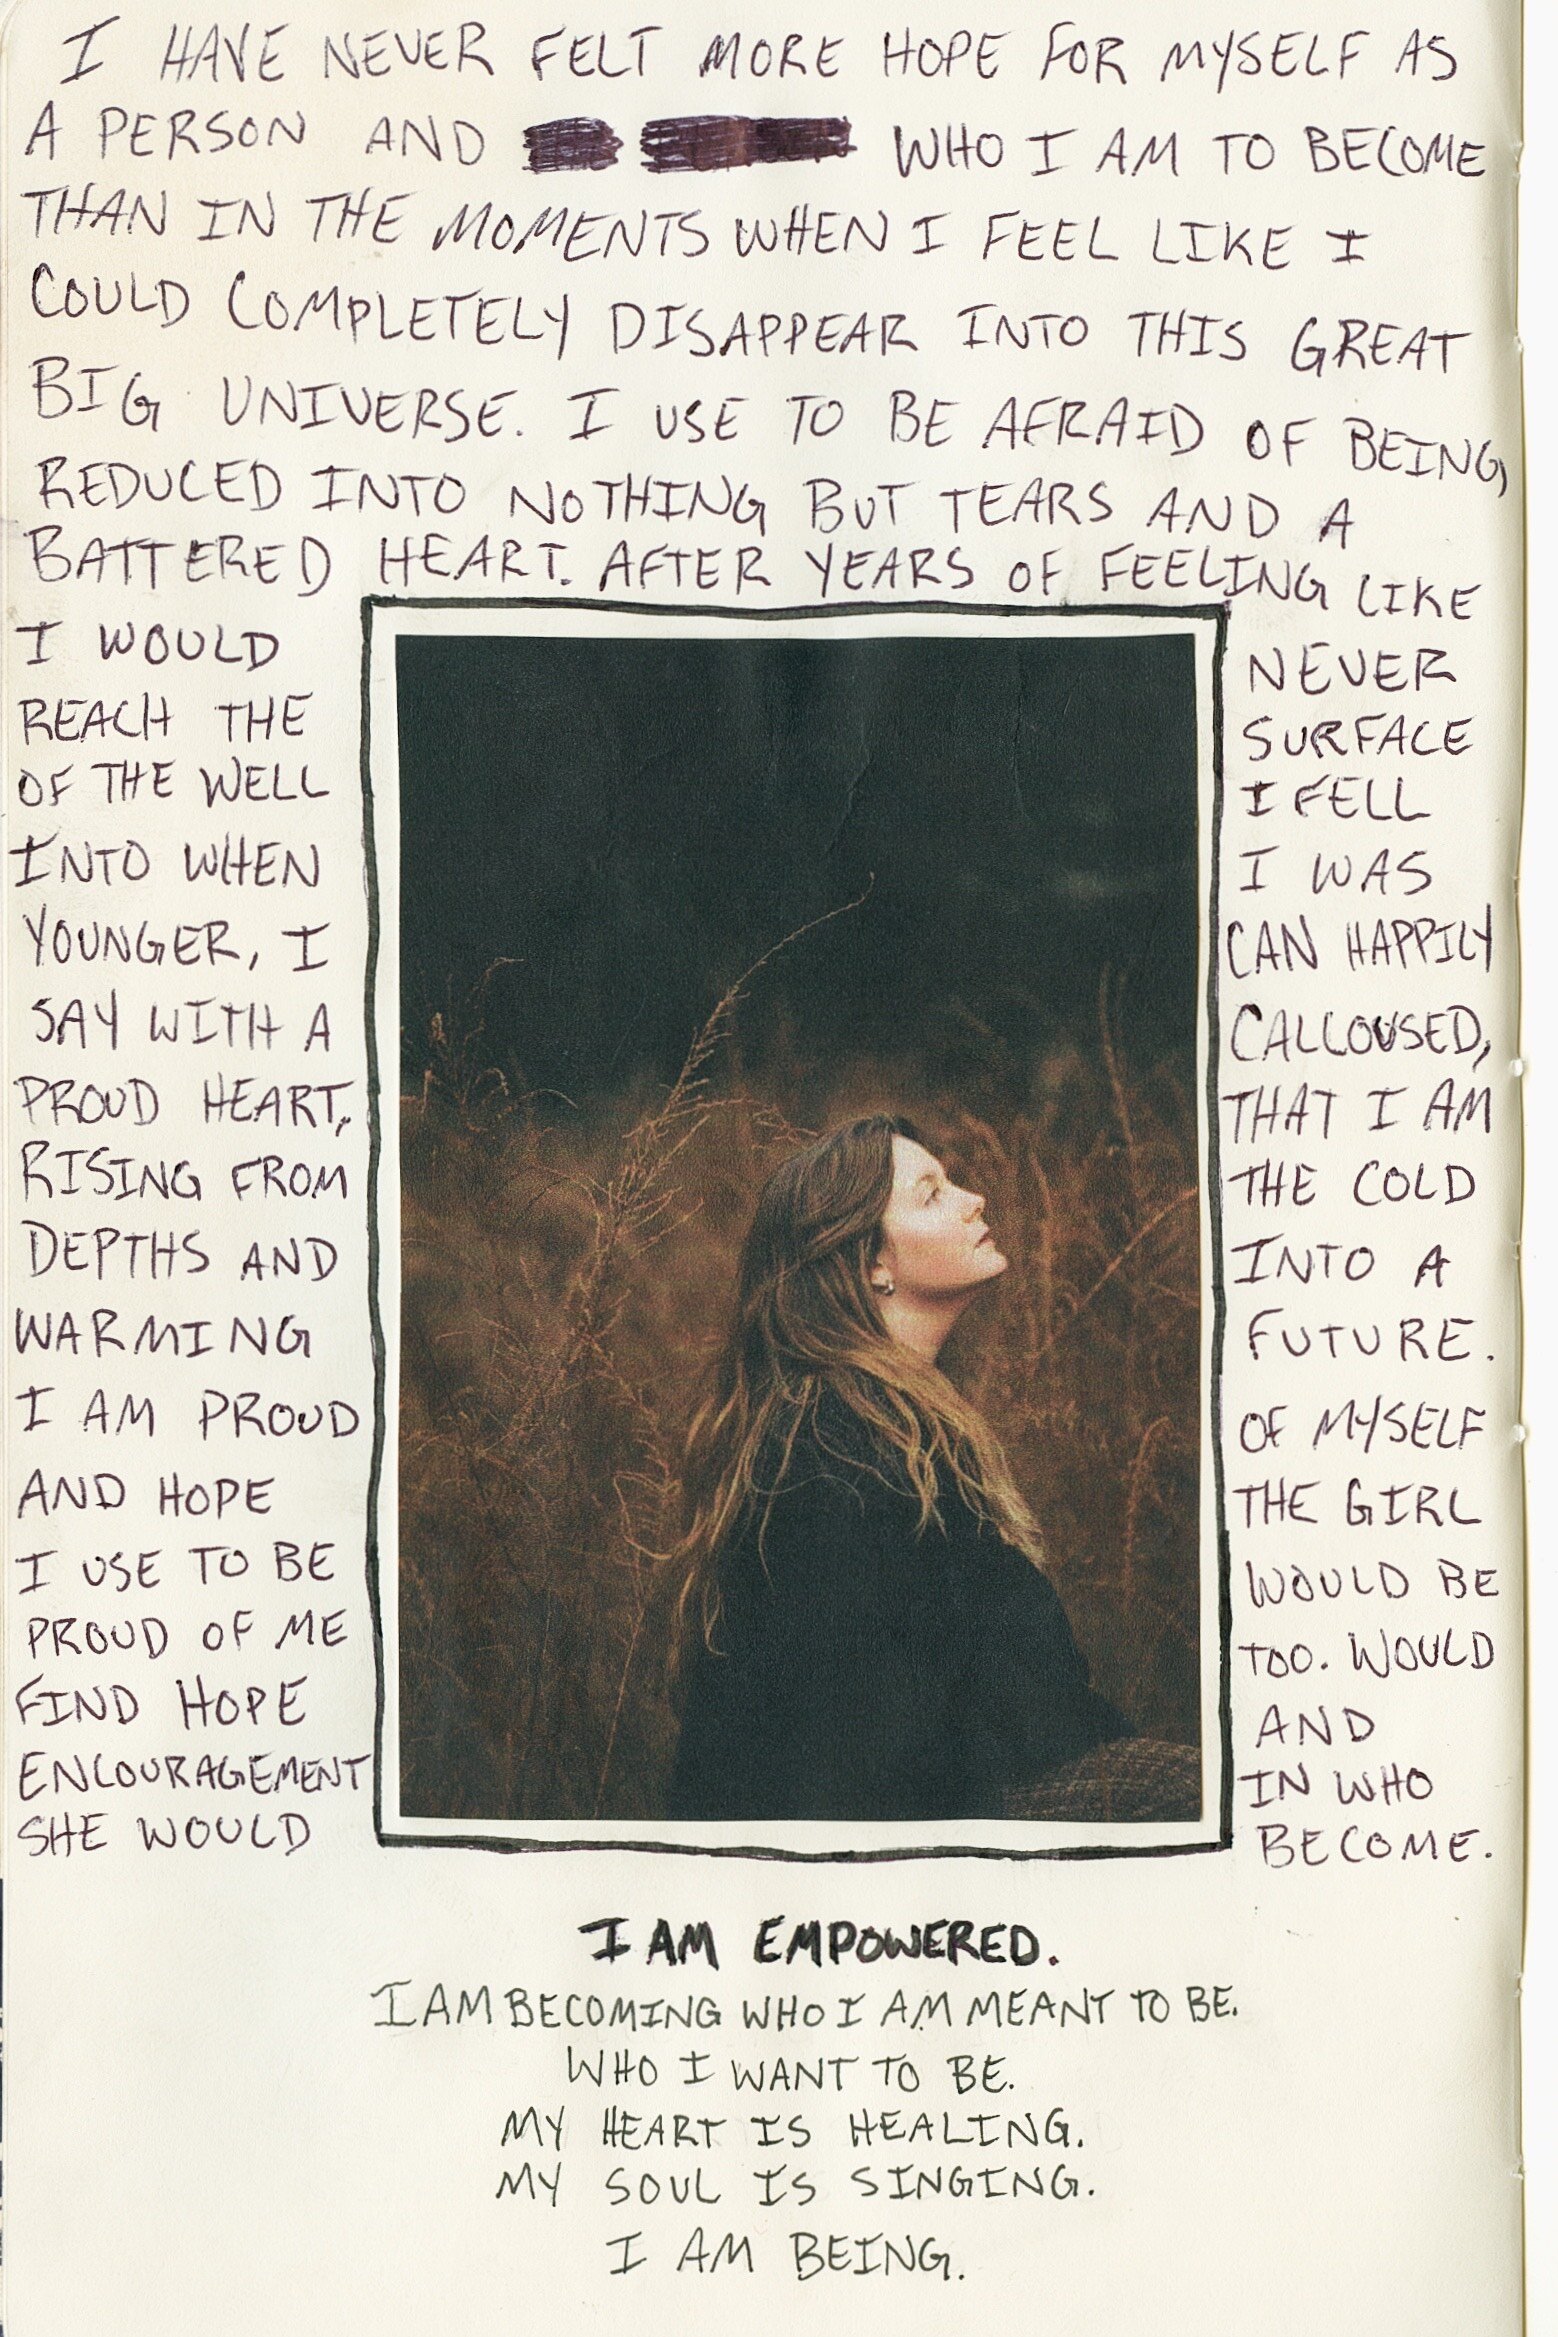 I HAVE NEVER FELT MORE HOPE FOR MYSELF AS
A PERSON AND WHO I AM TO BECOME
THAN IN THE MOMENTS WHEN I FEEL LIKE I
COULD COMPLETELY DISAPPEAR INTO THIS GREAT
BIG UNIVERSE. I USE TO BE AFRAID OF BEING,
REDUCED INTO NOTHING BUT TEARS AND A
BATTERED HEART. AFTER YEARS OF FEELING LIKE
I WOULD NEVER
REACH THE SURFACE
OF THE WELL I FELL
INTO WHEN I WAS
YOUNGER, I CAN HAPPILY
SAY WITH A CALLOUSED,
PROUD HEART, THAT I AM
RISING FROM THE COLD
DEPTHS AND INTO A
WARMING FUTURE.
I AM PROUD OF MYSELF
AND HOPE THE GIRL
I USE TO BE WOULD BE
PROUD OF ME TOO. WOULD
FIND HOPE AND
ENCOURAGEMENT IN WHO
SHE WOULD BECOME.
I AM EMPOWERED.
I AM BECOMING WHO I AM MEANT TO BE.
WHO I WANT TO BE.
MY HEART IS HEALING.
MY SOUL IS SINGING.
I AM BEING.